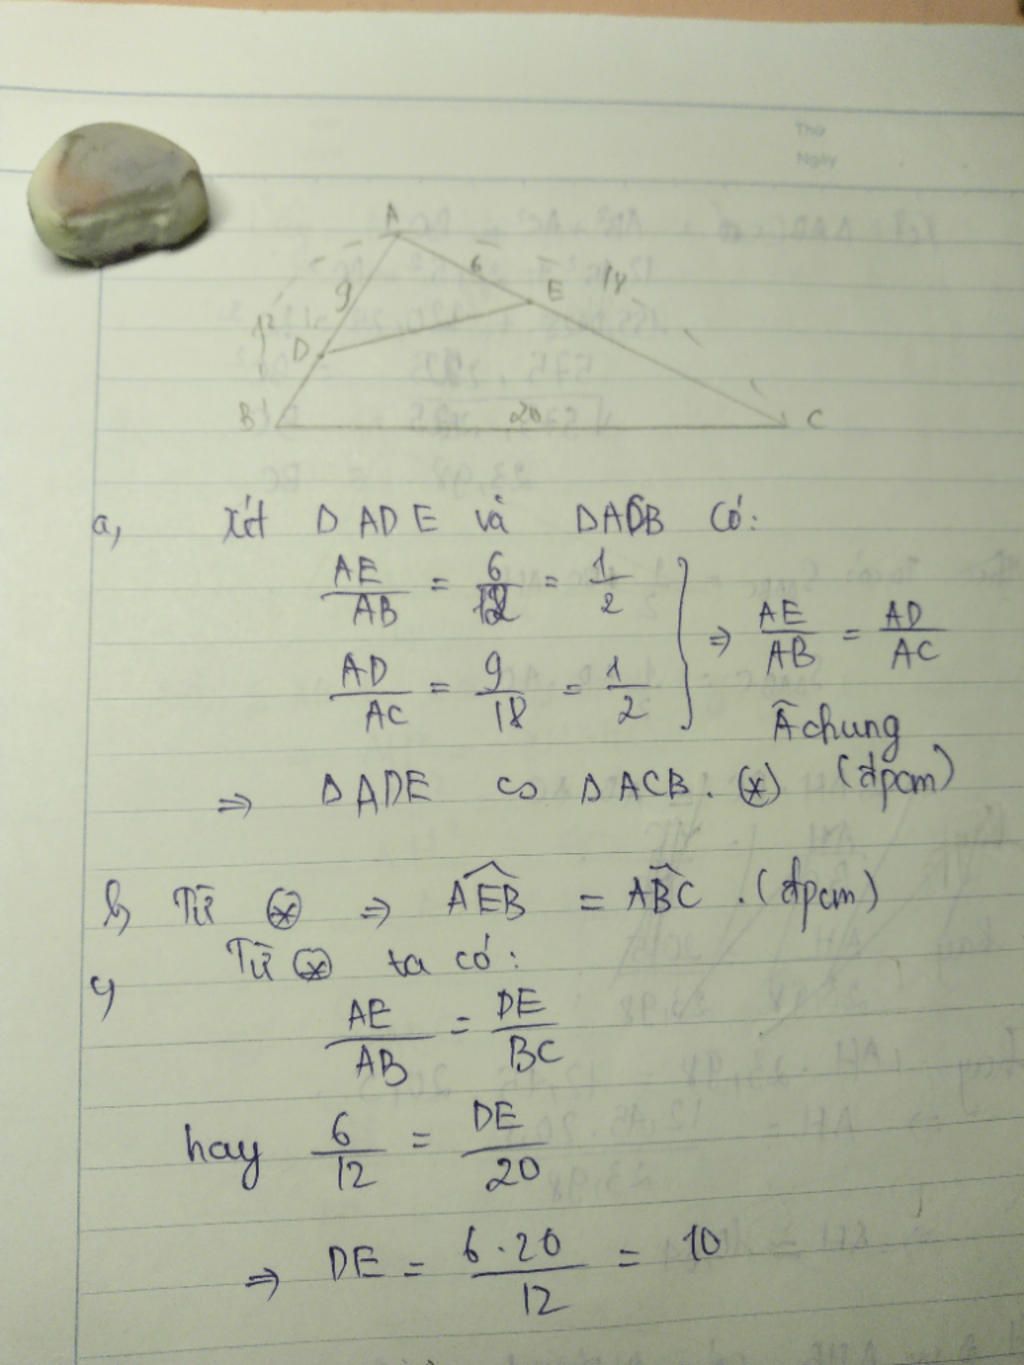 Thứ
Ngày
A
6
E
18
9
12
D
B
20
C
a, Xét ΔADE và ΔACB Có:
AE/AB = 6/12 = 1/2
AD/AC = 9/18 = 1/2
} ⇒ AE/AB = AD/AC
Â chung
⇒ ΔADE ∽ ΔACB. (*) (đpcm)
b, Từ (*) ⇒ AEB = ABC. (đpcm)
c, Từ (*) ta có:
AE/AB = DE/BC
hay 6/12 = DE/20
⇒ DE = 6.20/12 = 10